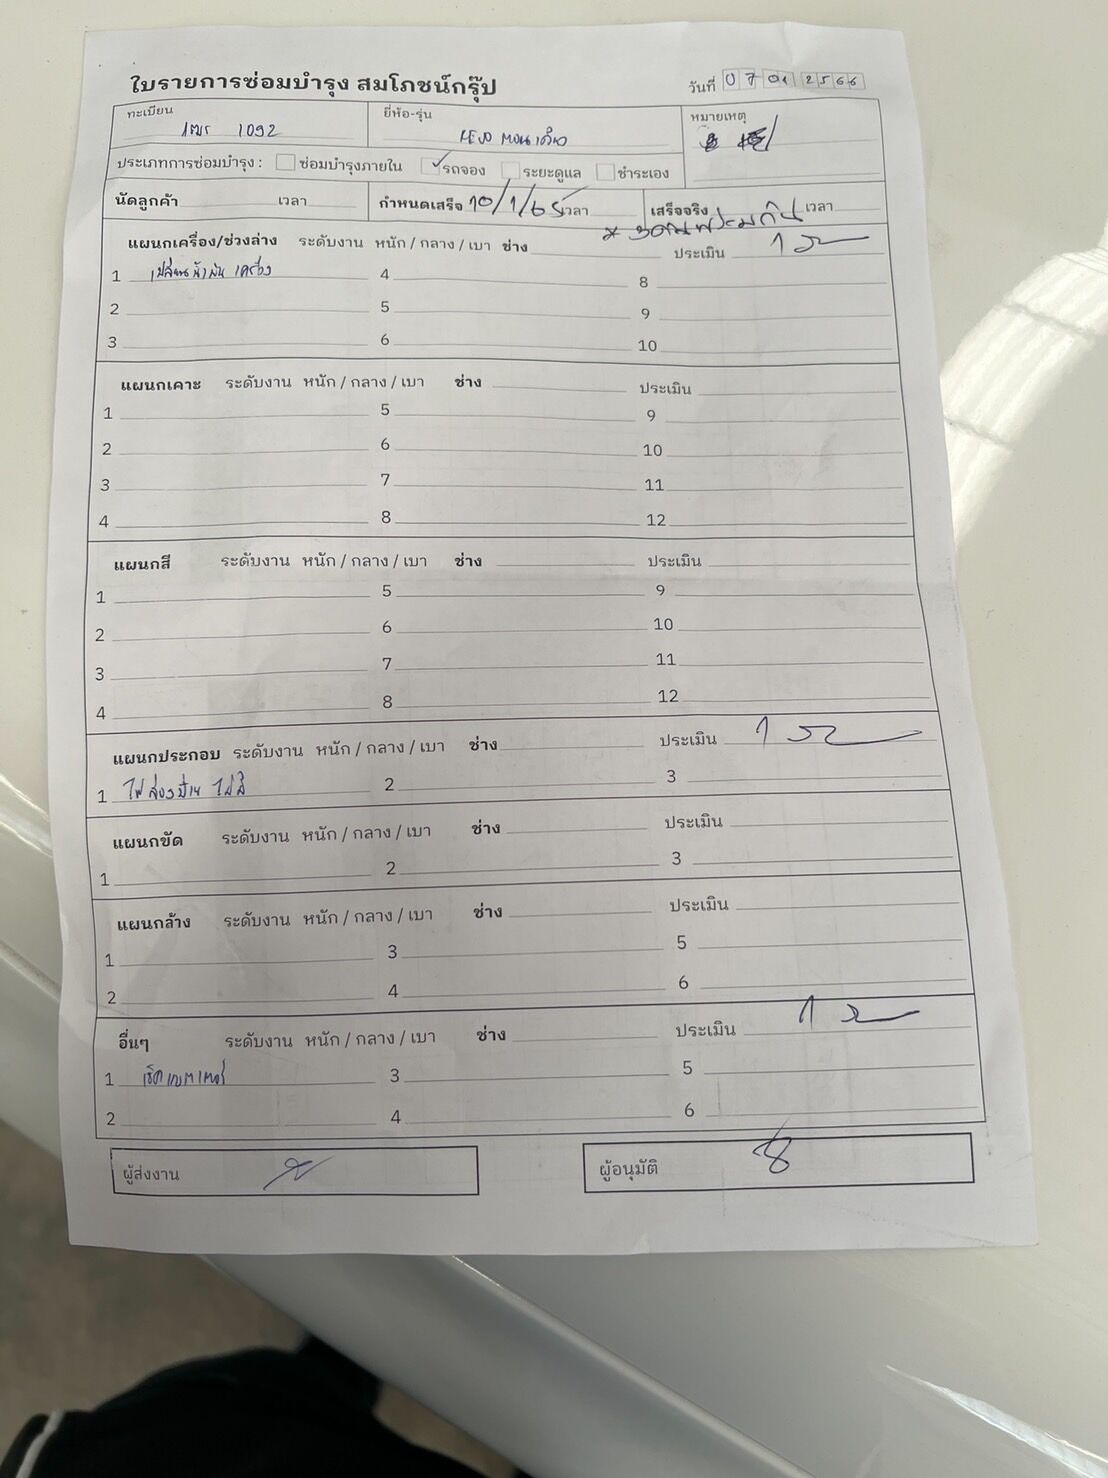 ใบรายการซ่อมบำรุง สมโภชน์กรุ๊ป
วันที่ 07 01 2566
ทะเบียน 1ฒร 1092
ยี่ห้อ-รุ่น REVO ตอนเดียว
หมายเหตุ
ประเภทการซ่อมบำรุง : ซ่อมบำรุงภายใน รถจอง ระยะดูแล ชำระเอง
นัดลูกค้า เวลา กำหนดเสร็จ 10/1/65 เวลา เสร็จจริง เวลา
แผนกเครื่อง/ช่วงล่าง ระดับงาน หนัก / กลาง / เบา ช่าง ประเมิน 1 วัน
1 เปลี่ยนน้ำมันเครื่อง 4 8
2 5 9
3 6 10
แผนกเคาะ ระดับงาน หนัก / กลาง / เบา ช่าง ประเมิน
1 5 9
2 6 10
3 7 11
4 8 12
แผนกสี ระดับงาน หนัก / กลาง / เบา ช่าง ประเมิน
1 5 9
2 6 10
3 7 11
4 8 12
แผนกประกอบ ระดับงาน หนัก / กลาง / เบา ช่าง ประเมิน 1 วัน
1 ไฟส่องป้าย ไม่ติด 2 3
แผนกขัด ระดับงาน หนัก / กลาง / เบา ช่าง ประเมิน
1 2 3
แผนกล้าง ระดับงาน หนัก / กลาง / เบา ช่าง ประเมิน
1 3 5
2 4 6
อื่นๆ ระดับงาน หนัก / กลาง / เบา ช่าง ประเมิน 1 วัน
1 เช็คแบตเตอรี่ 3 5
2 4 6
ผู้ส่งงาน
ผู้อนุมัติ